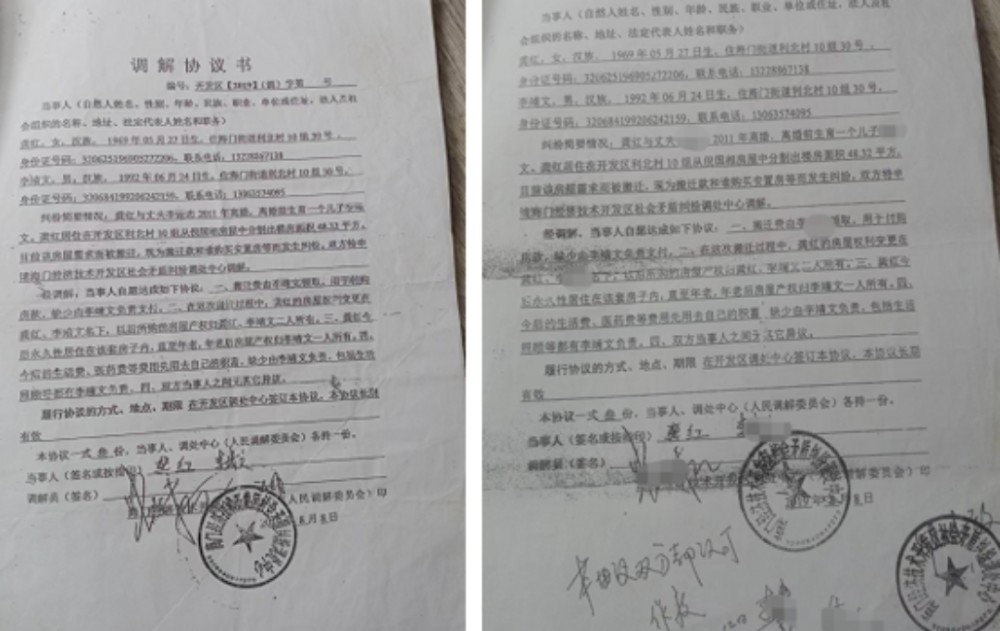 调解协议书
编号：开发区【2019】（调）字第 号
当事人（自然人姓名、性别、年龄、民族、职业、单位或住址，法人及社
会组织的名称、地址、法定代表人姓名和职务）
龚红，女，汉族， 1969 年 05 月 27 日生，住海门街道利北村 10 组 30 号，
身份证号码：320625196905272206，联系电话：13228867138
李埔文，男，汉族， 1992 年 06 月 24 日生，住海门街道利北村 10 组 30 号，
身份证号码：320684199206242159，联系电话：13063574095
纠纷简要情况：龚红与丈夫李 2011 年离婚，离婚前生育一个儿子李埔
文。龚红居住在开发区利北村 10 组从倪国相房屋中分割出楼房面积 48.32 平方，
目前该房屋需求而被搬迁，现为搬迁款和谁购买安置房等而发生纠纷，双方特申
请海门经济技术开发区社会矛盾纠纷调处中心调解。
经调解，当事人自愿达成如下协议：一、搬迁费由李埔文领取，用于付购
房款，缺少由李埔文负责支付。二、在这次搬迁过程中，龚红的房屋权利变更在
龚红、李埔文名下，以后所购的房屋产权归龚红、李埔文二人所有。三、龚红今
后永久性居住在该套房子内，直至年老，年老后房屋产权归李埔文一人所有。四、
今后的生活费、医药费等费用先用去自己的积蓄，缺少由李埔文负责，包括生活
照顾等都有李埔文负责。四、双方当事人之间无其它异议。
履行协议的方式、地点、期限 在开发区调处中心签订本协议。本协议长期
有效
本协议一式 叁 份，当事人、调处中心（人民调解委员会）各持一份。
当事人（签名或按指印） 龚红
调解员（签名）
（人民调解委员会）印
8月8日
当事人（自然人姓名、性别、年龄、民族、职业，单位或住址，法人及社
会组织的名称、地址、法定代表人姓名和职务）
龚红，女，汉族， 1969 年 05 月 27 日生，住海门街道利北村 10 组 30 号，
身份证号码：320625196905272206，联系电话：13228867138
李埔文，男，汉族， 1992 年 06 月 24 日生，住海门街道利北村 10 组 30 号，
身份证号码：320684199206242159，联系电话：13063574095
纠纷简要情况：龚红与丈夫 2011 年离婚，离婚前生育一个儿子
文。龚红居住在开发区利北村 10 组从倪国相房屋中分割出楼房面积 48.32 平方，
目前该房屋需求而被搬迁，现为搬迁款和谁购买安置房等而发生纠纷，双方特申
请海门经济技术开发区社会矛盾纠纷调处中心调解。
经调解，当事人自愿达成如下协议：一、搬迁费由李 领取，用于付购
房款，缺少由李埔文负责支付。二、在这次搬迁过程中，龚红的房屋权利变更在
龚红、 名下，以后所购的房屋产权归龚红、李埔文二人所有。三、龚红今
后永久性居住在该套房子内，直至年老，年老后房屋产权归李埔文一人所有。四、
今后的生活费、医药费等费用先用去自己的积蓄，缺少由李埔文负责，包括生活
照顾等都有李埔文负责。四、双方当事人之间无其它异议。
履行协议的方式、地点、期限 在开发区调处中心签订本协议。本协议长期
有效
本协议一式 叁 份，当事人、调处中心（人民调解委员会）各持一份。
当事人（签名或按指印） 龚红
调解员（签名）
技术开发 调解委员会）印
2019年8月8日
本协议双方都认可
作数